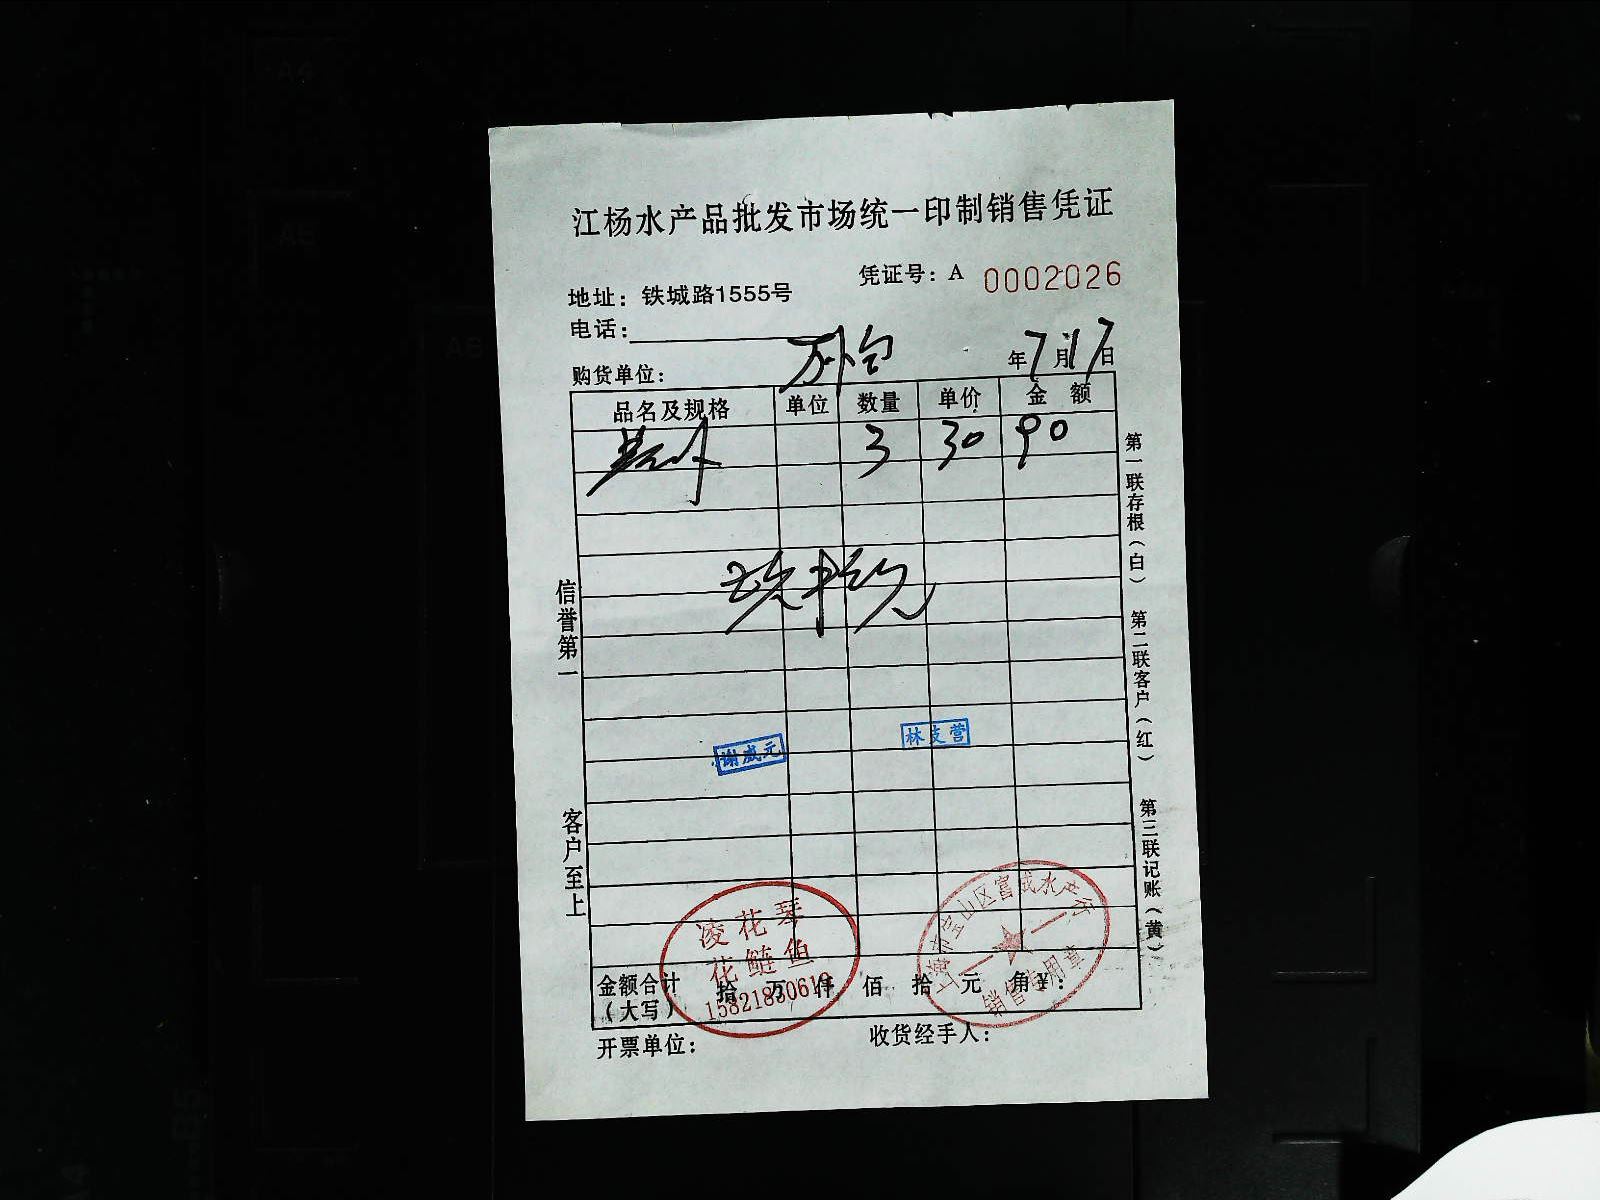 江杨水产品批发市场统一印制销售凭证
凭证号：A 0002026
地址：铁城路1555号
电话：
购货单位：
年7月17日
品名及规格 单位 数量 单价 金 额
3 30 90
信誉第一
客户至上
第一联存根（白）
第二联客户（红）
第三联记账（黄）
谢成元
林支营
凌花琴
花鲢鱼
15821830619
上海市宝山区富成水产行
销售专用章
金额合计（大写） 拾 万 仟 佰 拾 元 角 ¥：
开票单位：
收货经手人：